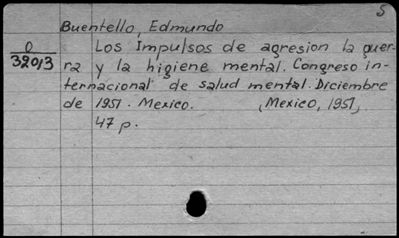 5
Buentello, Edmundo
0
32013
Los Impulsos de agresion la guer-
ra y la higiene mental. Congreso in-
ternacional de salud mental. Diciembre
de 1951. Mexico. (Mexico, 1951)
47 p.